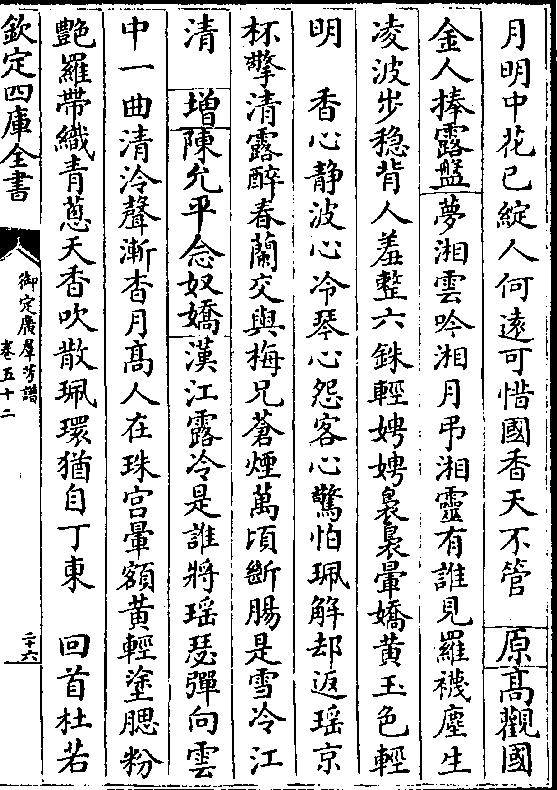 月明中花已綻人何遠可惜國香天不管　原高觀國
金人捧露盤夢湘雲吟湘月弔湘靈有誰見羅襪塵生
凌波步穩背人羞整六銖輕娉娉裊裊暈嬌黃玉色輕
明　香心静波心冷琴心怨客心驚怕珮解却返瑶京
杯擎清露醉春蘭交與梅兄蒼煙萬頃斷腸是雪冷江
清　增陳允平念奴嬌漢江露冷是誰將瑶瑟彈向雲
中一曲清泠聲漸杳月髙人在珠宮暈額黃輕塗腮粉
艷羅帶織青蔥天香吹散珮環猶自丁東　回首杜若
欽定四庫全書
御定廣羣芳譜
卷五十二
二十六